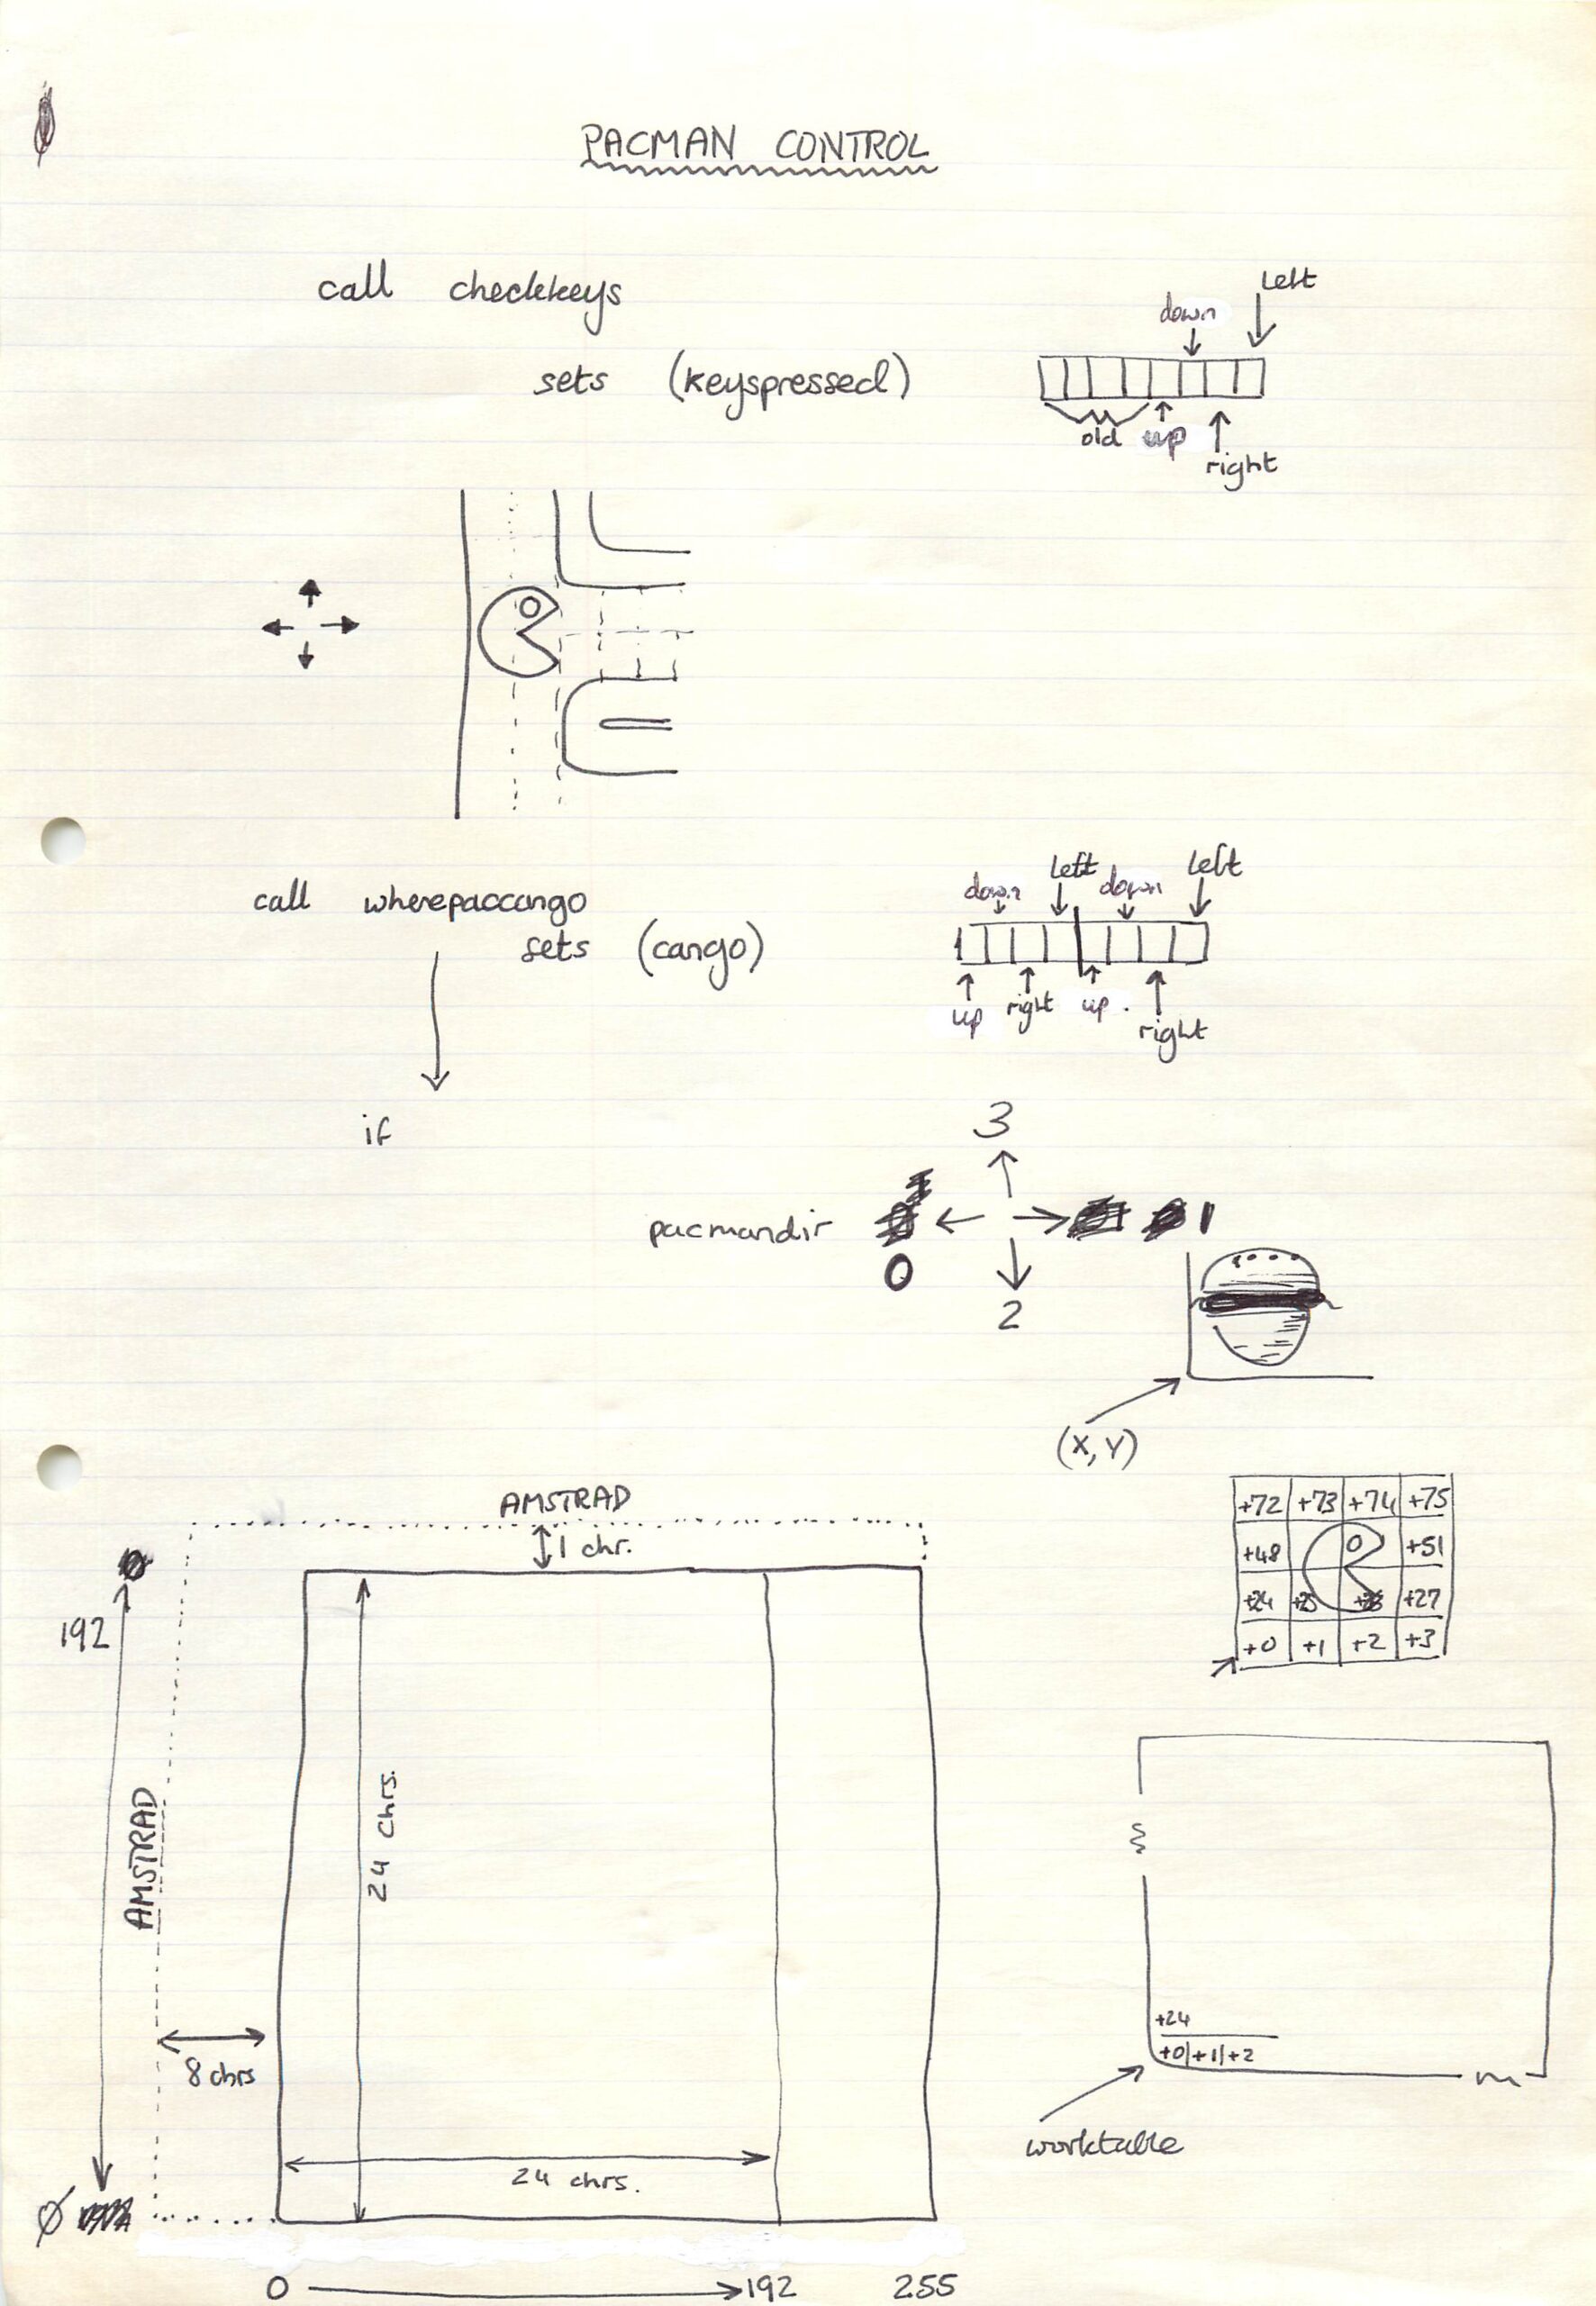 PACMAN CONTROL
call checkkeys
sets (keyspressed)
left
down
old up
right
call wherepaccango
sets (cango)
down left down left
up right up. right
if
3
pacmandir
0
1
2
(X, Y)
+72 +73 +74 +75
+48 +51
+24 +25 +27
+0 +1 +2 +3
AMSTRAD
1 chr.
192
AMSTRAD
24 chrs.
8 chrs
24 chrs.
Ø
0 192 255
+24
+0 +1 +2
worktable